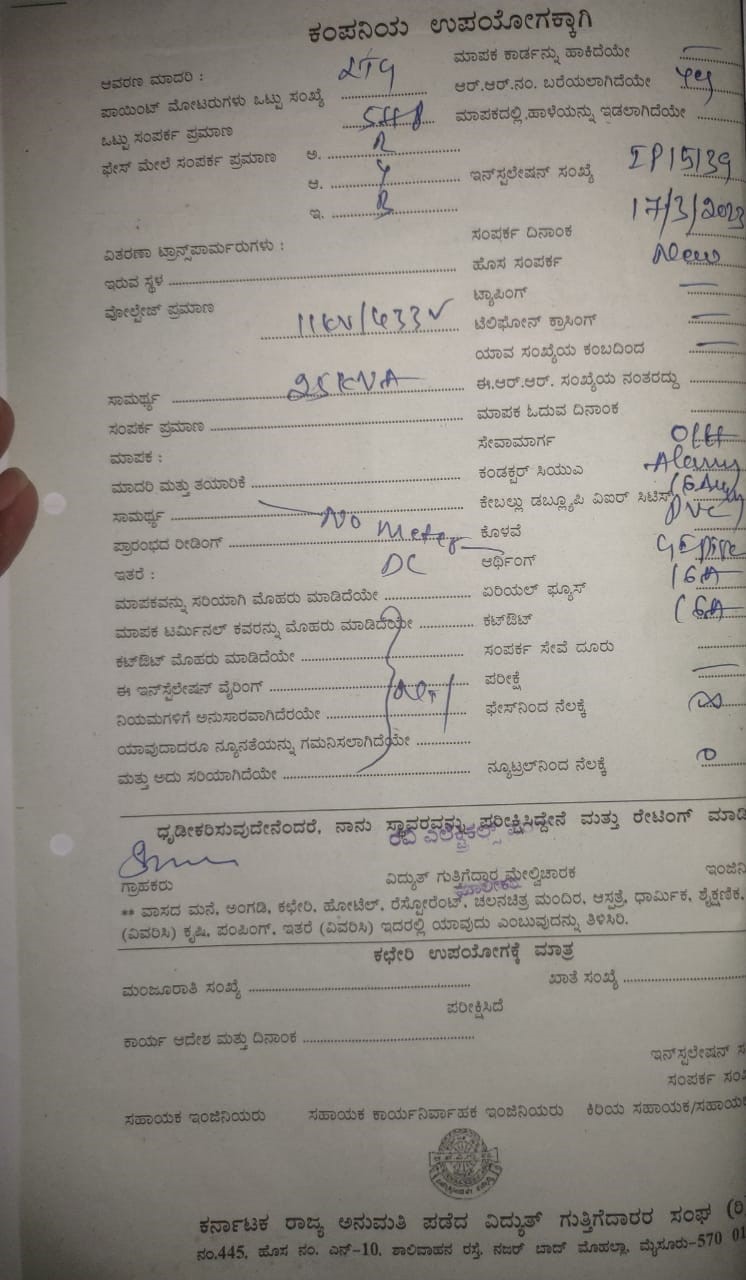 ಕಂಪನಿಯ ಉಪಯೋಗಕ್ಕಾಗಿ
ಆವರಣ ಮಾದರಿ : LTG ಮಾಪಕ ಕಾರ್ಡನ್ನು ಹಾಕಿದೆಯೇ
ಪಾಯಿಂಟ್ ಮೋಟರುಗಳು ಒಟ್ಟು ಸಂಖ್ಯೆ ಆರ್.ಆರ್.ನಂ. ಬರೆಯಲಾಗಿದೆಯೇ yes
ಒಟ್ಟು ಸಂಪರ್ಕ ಪ್ರಮಾಣ 5HP ಮಾಪಕದಲ್ಲಿ ಹಾಳೆಯನ್ನು ಇಡಲಾಗಿದೆಯೇ
ಫೇಸ್ ಮೇಲೆ ಸಂಪರ್ಕ ಪ್ರಮಾಣ ಅ. R
ಆ. Y ಇನ್‌ಸ್ಪಲೇಷನ್ ಸಂಖ್ಯೆ IP15139
ಇ. B ಸಂಪರ್ಕ ದಿನಾಂಕ 17/3/2023
ವಿತರಣಾ ಟ್ರಾನ್ಸ್‌ಪಾರ್ಮರುಗಳು : ಹೊಸ ಸಂಪರ್ಕ New
ಇರುವ ಸ್ಥಳ ಟ್ಯಾಪಿಂಗ್
ವೋಲ್ಟೇಜ್ ಪ್ರಮಾಣ 11KV/433V ಟೆಲಿಫೋನ್ ಕ್ರಾಸಿಂಗ್
ಯಾವ ಸಂಖ್ಯೆಯ ಕಂಬದಿಂದ
ಸಾಮರ್ಥ್ಯ 25KVA ಈ.ಆರ್.ಆರ್. ಸಂಖ್ಯೆಯ ನಂತರದ್ದು
ಸಂಪರ್ಕ ಪ್ರಮಾಣ ಮಾಪಕ ಓದುವ ದಿನಾಂಕ
ಮಾಪಕ : ಸೇವಾಮಾರ್ಗ
ಮಾದರಿ ಮತ್ತು ತಯಾರಿಕೆ ಕಂಡಕ್ಟರ್ ಸಿಯುವಿ
ಸಾಮರ್ಥ್ಯ No Meter ಕೇಬಲ್ಲು ಡಬ್ಲ್ಯೂಪಿ ವಿಐರ್ ಸಿಟಿಸ್ PVC
ಪ್ರಾರಂಭದ ರೀಡಿಂಗ್ ಕೊಳವೆ
ಇತರೆ : DC ಆರ್ಥಿಂಗ್
ಮಾಪಕವನ್ನು ಸರಿಯಾಗಿ ಮೊಹರು ಮಾಡಿದೆಯೇ ಏರಿಯಲ್ ಫ್ಯೂಸ್ 16A
ಮಾಪಕ ಟರ್ಮಿನಲ್ ಕವರನ್ನು ಮೊಹರು ಮಾಡಿದೆಯೇ ಕಟ್‌ಔಟ್ 16A
ಕಟ್‌ಔಟ್ ಮೊಹರು ಮಾಡಿದೆಯೇ ಸಂಪರ್ಕ ಸೇವೆ ದೂರು
ಈ ಇನ್‌ಸ್ಪೆಲೇಷನ್ ವೈರಿಂಗ್ ಪರೀಕ್ಷೆ
ನಿಯಮಗಳಿಗೆ ಅನುಸಾರವಾಗಿದೆರಯೇ ಫೇಸ್‌ನಿಂದ ನೆಲಕ್ಕೆ ∞
ಯಾವುದಾದರೂ ನ್ಯೂನತೆಯನ್ನು ಗಮನಿಸಲಾಗಿದೆಯೇ
ಮತ್ತು ಅದು ಸರಿಯಾಗಿದೆಯೇ ನ್ಯೂಟ್ರಲ್‌ನಿಂದ ನೆಲಕ್ಕೆ 0
ಧೃಡೀಕರಿಸುವುದೇನೆಂದರೆ, ನಾನು ಸ್ಥಾವರವನ್ನು ಪರೀಕ್ಷಿಸಿದ್ದೇನೆ ಮತ್ತು ರೇಟಿಂಗ್ ಮಾಡಿ
ರವಿ ಎಲೆಕ್ಟ್ರಿಕಲ್ಸ್
ಗ್ರಾಹಕರು ವಿದ್ಯುತ್ ಗುತ್ತಿಗೆದಾರ ಮೇಲ್ವಿಚಾರಕ ಇಂಜಿನಿ
ಮಾಲೀಕರು
** ವಾಸದ ಮನೆ, ಅಂಗಡಿ, ಕಛೇರಿ, ಹೋಟೆಲ್, ರೆಸ್ಟೋರೆಂಟ್, ಚಲನಚಿತ್ರ ಮಂದಿರ, ಆಸ್ಪತ್ರೆ, ಧಾರ್ಮಿಕ, ಶೈಕ್ಷಣಿಕ,
(ವಿವರಿಸಿ) ಕೃಷಿ, ಪಂಪಿಂಗ್, ಇತರೆ (ವಿವರಿಸಿ) ಇದರಲ್ಲಿ ಯಾವುದು ಎಂಬುವುದನ್ನು ತಿಳಿಸಿರಿ.
ಕಛೇರಿ ಉಪಯೋಗಕ್ಕೆ ಮಾತ್ರ
ಮಂಜೂರಾತಿ ಸಂಖ್ಯೆ ಖಾತೆ ಸಂಖ್ಯೆ
ಪರೀಕ್ಷಿಸಿದೆ
ಕಾರ್ಯ ಆದೇಶ ಮತ್ತು ದಿನಾಂಕ
ಇನ್‌ಸ್ಪಲೇಷನ್ ಸ
ಸಂಪರ್ಕ ಸಂ
ಸಹಾಯಕ ಇಂಜಿನಿಯರು ಸಹಾಯಕ ಕಾರ್ಯನಿರ್ವಾಹಕ ಇಂಜಿನಿಯರು ಕಿರಿಯ ಸಹಾಯಕ/ಸಹಾಯಕ
ಕರ್ನಾಟಕ ರಾಜ್ಯ ಅನುಮತಿ ಪಡೆದ ವಿದ್ಯುತ್ ಗುತ್ತಿಗೆದಾರರ ಸಂಘ (ರಿ
ನಂ.445, ಹೊಸ ನಂ. ಎನ್-10, ಶಾಲಿವಾಹನ ರಸ್ತೆ, ನಜರ್ ಬಾದ್ ಮೊಹಲ್ಲಾ, ಮೈಸೂರು-570 01